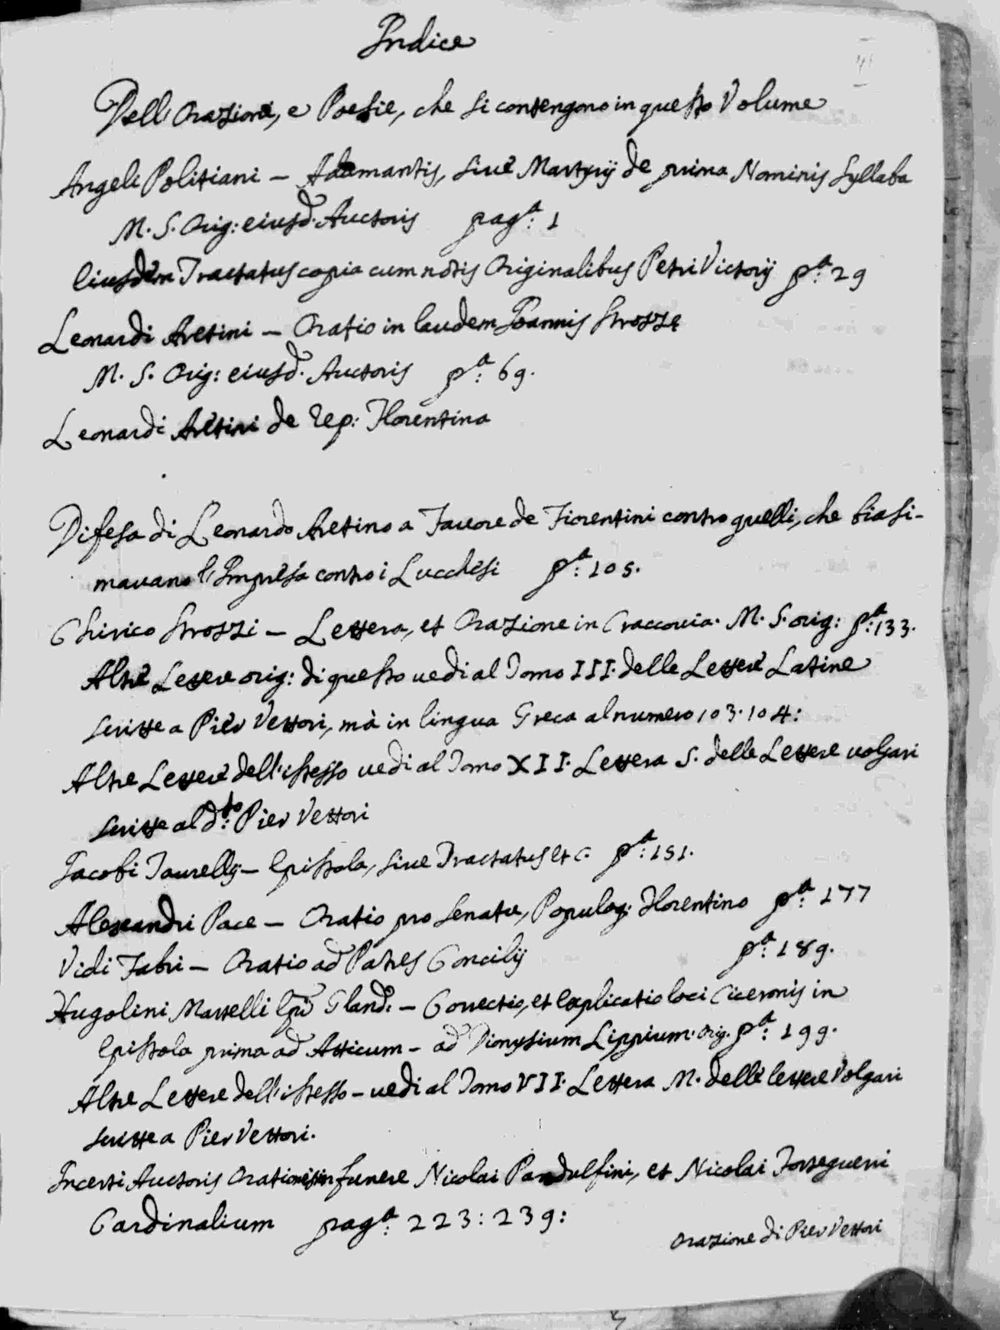 Indice
Dell'Orazioni, e Poesie, che si contengono in questo Volume
Angeli Politiani – Adamantis, siue Martyrij de prima Nominis Syllaba
M. S. Orig: eiusd. Auctoris pag.ª 1
Eiusdem Tractatus copia cum notis Originalibus Petri Victorij p.ª 29
Leonardi Aretini – Oratio in laudem Joannis Strozze
M. S. Orig: eiusd. Auctoris p.ª 69.
Leonardi Aretini de Rep: Florentina
Difesa di Leonardo Aretino a Fauore de Fiorentini contro quelli, che biasi-
mauano l'Impresa contro i Lucchesi p.ª 105.
Chirico Strozzi – Lettera, et Orazione in Craccouia. M. S. orig: p.ª 133.
Altre Lettere orig: di questo uedi al Tomo III. delle Lettere Latine
scritte a Pier Vettori, mà in lingua Greca al numero 103. 104:
Altre Lettere dell'istesso uedi al Tomo XII. Lettera S. delle Lettere uolgari
scritte al d.to Pier Vettori
Jacobi Taurellij – Epistola, siue Tractatus et c. p.ª 151.
Alexandri Pace – Oratio pro Senatu, Populoq; Florentino p.ª 177
Vidi Fabri – Oratio ad Patres Concilij p.ª 189.
Hugolini Martelli Epi Gland. – Correctio, et explicatio loci Ciceronis in
Epistola prima ad Atticum – ad Dionysium Lippium. Orig. p.ª 199.
Altre Lettere dell'istesso – uedi al Tomo VII. Lettera M. delle lettere Volgari
scritte a Pier Vettori.
Incerti Auctoris Orationes in funere Nicolai Pandulfini, et Nicolai Forteguerri
Cardinalium pag.ª 223: 239:
Orazione di Pier Vettori